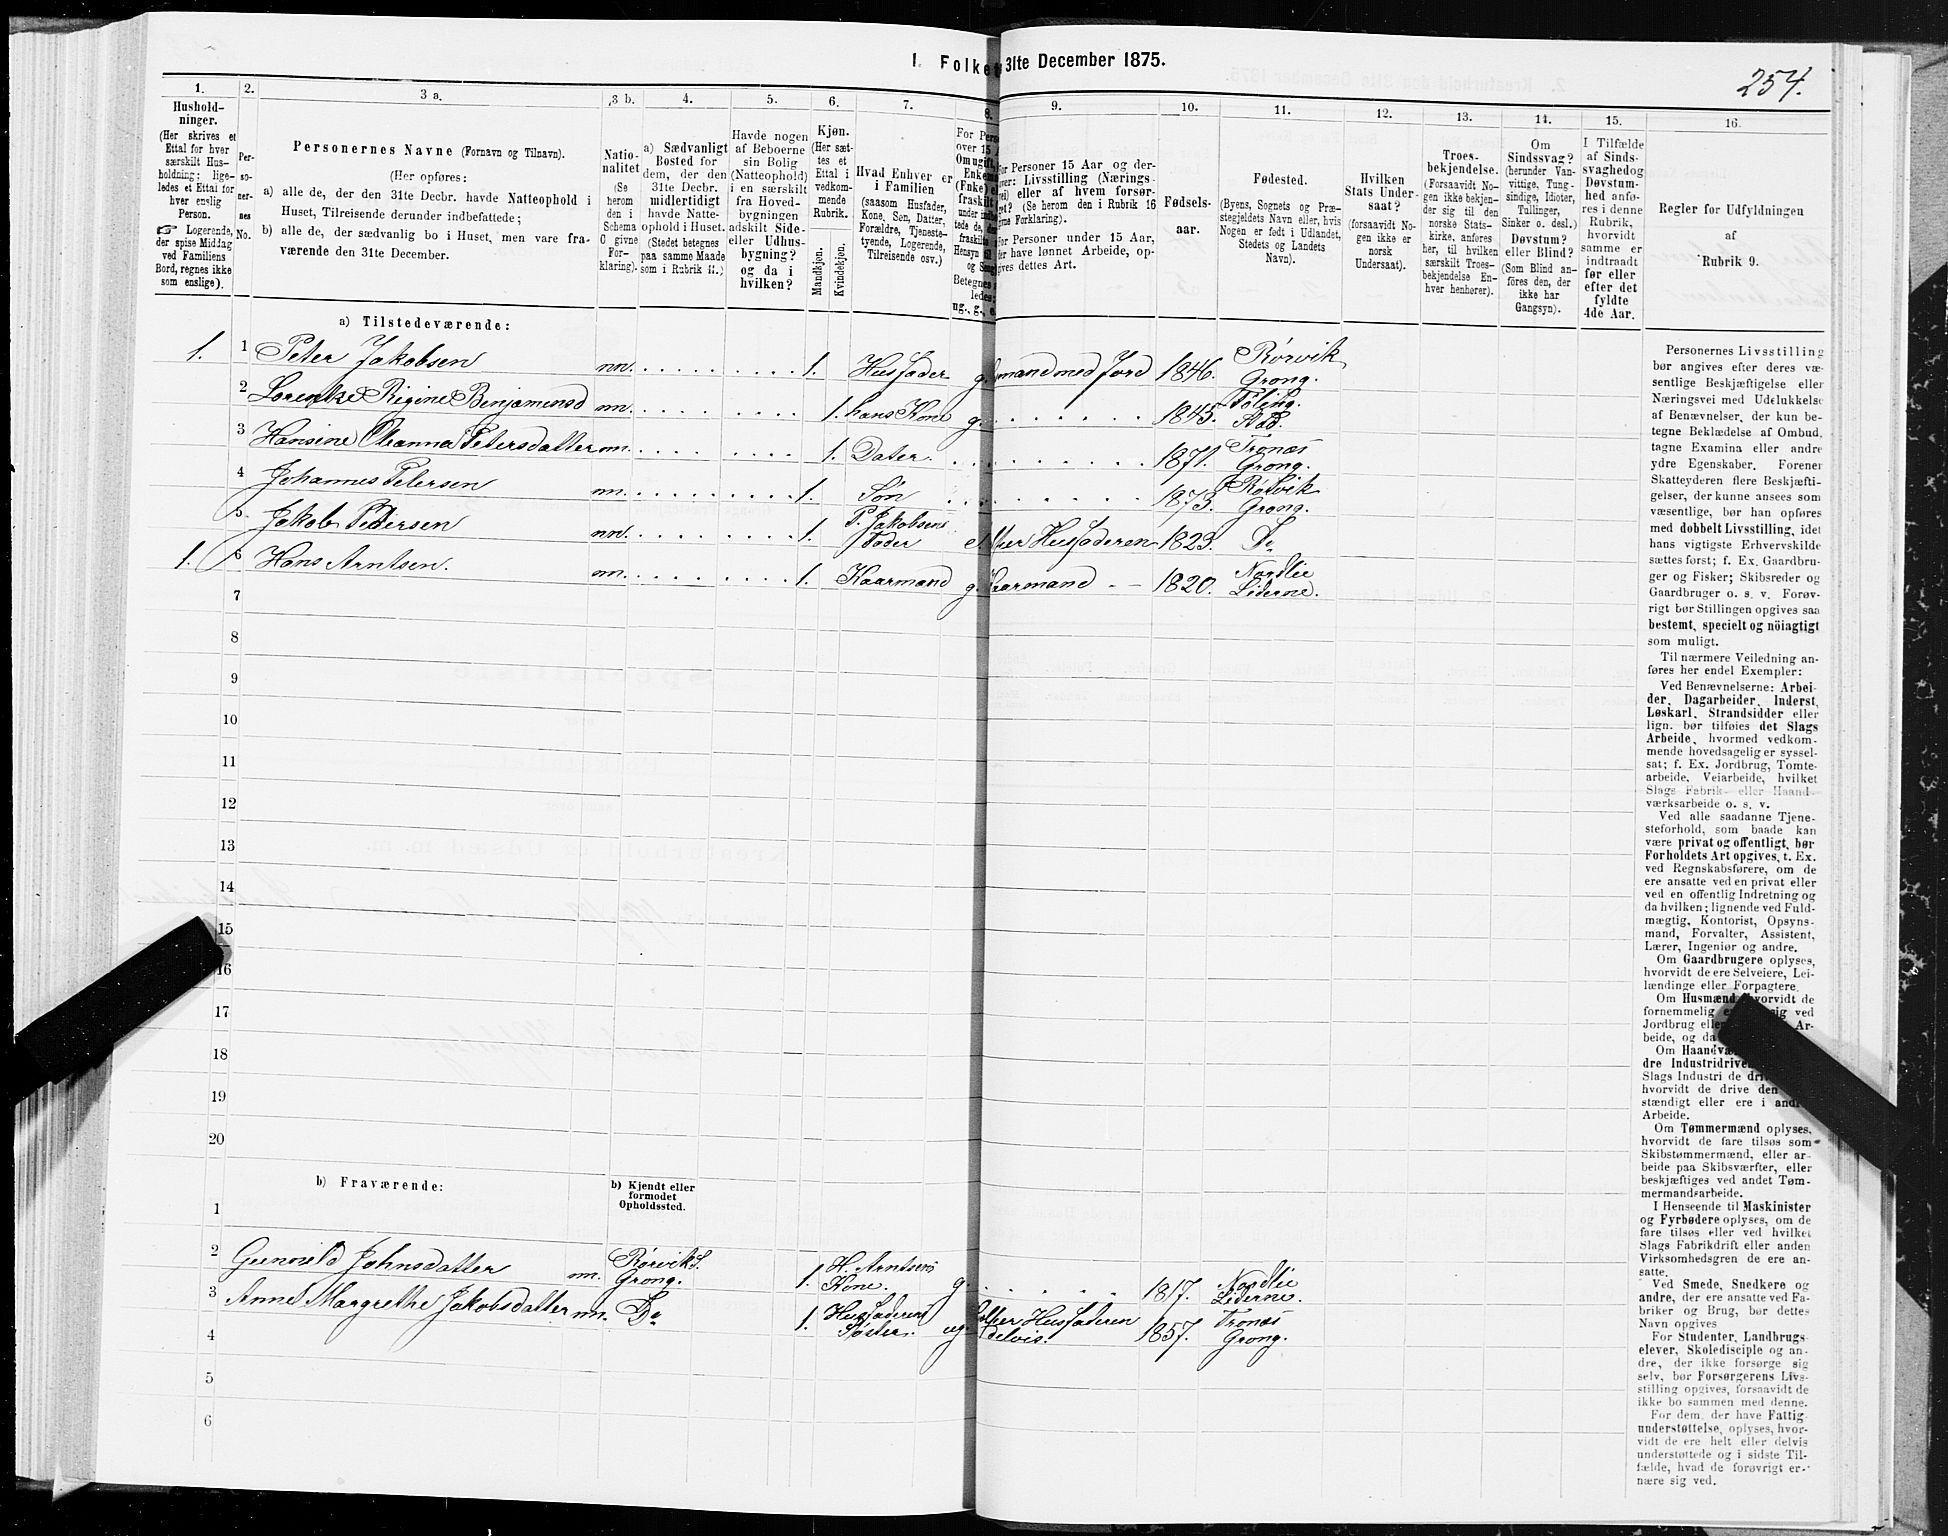 1. Folke 31te December 1875.
254.
1.
2.
3 a.
3 b.
4.
5.
6.
7.
8.
9.
10.
11.
12.
13.
14.
15.
16.
Hushold-
ninger.
(Her skrives et
Ettal for hver
særskilt Hus-
holdning; lige-
ledes et Ettal for
hver enslig
Person.
☞ Logerende,
der spise Middag
ved Familiens
Bord, regnes ikke
som enslige).
Per-
so-
ner-
nes
No.
Personernes Navne (Fornavn og Tilnavn).
(Her opføres:
a) alle de, der den 31te Decbr. havde Natteophold i
Huset, Tilreisende derunder indbefattede;
b) alle de, der sædvanlig bo i Huset, men vare fra-
værende den 31te December.
Natio-
nalitet
(Se
herom
den i
Schema
C givne
For-
klaring).
a) Sædvanligt
Bosted for
dem, der den
31te Decbr.
midlertidigt
havde Natte-
ophold i Huset.
(Stedet betegnes
paa samme Maade
som i Rubrik 11.)
Havde nogen
af Beboerne
sin Bolig
(Natteophold)
i en særskilt
fra Hoved-
bygningen
adskilt Side-
eller Udhus-
bygning?
og da i
hvilken?
Kjøn.
(Her sæt-
tes et
Ettal i
vedkom-
mende
Rubrik.
Mandkjøn.
Kvindekjøn.
Hvad Enhver er
i Familien
(saasom Husfader,
Kone, Søn, Datter,
Forældre, Tjeneste-
tyende, Logerende,
Tilreisende osv.)
For Pers
over 15 A
Om ugift,
Enkem
(Enke) e
fraskilt
Hensyn til
og Seng
Betegnes s
ledes:
ug., g., e.
For Personer 15 Aar og der-
over: Livsstilling (Nærings-
vei) eller af hvem forsør-
get? (Se herom den i Rubrik 16
givne Forklaring).
For Personer under 15 Aar,
der have lønnet Arbeide, op-
gives dettes Art.
Fødsels-
aar.
Fødested.
(Byens, Sognets og Præ-
stegjeldets Navn eller, hvis
Nogen er født i Udlandet,
Stedets og Landets
Navn).
Hvilken
Stats Under-
saat?
(forsaavidt No-
gen ikke er
norsk
Undersaat).
Troes-
bekjendelse.
(Forsaavidt No-
gen ikke bekjen-
der sig til den
norske Stats-
kirke, anføres
her, til hvilken
særskilt Troes-
bekjendelse En-
hver henhører).
Om
Sindssvag?
(herunder Van-
vittige, Tung-
sindige, Idioter,
Tullinger,
Sinker o. desl.)
Døvstum?
eller Blind?
(Som Blind an-
føres den, der
ikke har
Gangsyn).
I Tilfælde
af Sinds-
svaghed og
Døvstum-
hed anfø-
res i denne
Rubrik,
hvorvidt
samme er
indtraadt
før eller
efter det
fyldte
4de Aar.
Regler for Udfyldningen
af
Rubrik 9.
a) Tilstedeværende:
1. 1 Peter Jakobsen nn. 1. Husfader g. mand med Jord 1846. Rørvik Grong.
2 Lorentse Regine Benjaminsd nn. 1. hans Kone g. 1845. Føling. Stod.
3 Hansine Oleanna Petersdatter nn. 1. Dater. 1871. Tronæs Grong.
4 Johannes Petersen nn. 1. Søn 1873. Rørvik Grong.
5. Jakob Pedersen nn. 1. P. Jakobsens Fader e. Husfaderen 1823. Do
1. 6 Hans Arntsen. nn. 1. Kaarmand g. Kaarmand 1820. Nordlie Lierne.
7
8
9
10
11
12
13
14
15
16
17
18
19
20
b) Fraværende:
b) Kjendt eller
formodet
Opholdssted.
1
2 Gunild Johnsdatter nn. Rørvik S. Grong. 1. H. Arntsens Kone. g. 1817. Nordlie Lierne.
3 Anne Margrethe Jakobsdatter nn. Do 1. Husfaderens Søster. ug. Husfaderen delvis. 1857. Tronæs Grong.
4
5
6
Personernes Livsstilling
bør angives efter deres væ-
sentlige Beskjæftigelse eller
Næringsvei med Udelukkelse
af Benævnelser, der kun be-
tegne Beklædelse af Ombud,
tagne Examina eller andre
ydre Egenskaber. Forener
Skatteyderen flere Beskjæfti-
gelser, der kunne ansees som
væsentlige, bør han opføres
med dobbelt Livsstilling, idet
hans vigtigste Erhvervskilde
sættes først; f. Ex. Gaardbru-
ger og Fisker; Skibsreder og
Gaardbruger o. s. v. Forøv-
rigt bør Stillingen opgives saa
bestemt, specielt og nøiagtigt
som muligt.
Til nærmere Veiledning an-
føres her endel Exempler:
Ved Benævnelserne: Arbei-
der, Dagarbeider, Inderst,
Løskarl, Strandsidder eller
lign. bør tilføies det Slags
Arbeide, hvormed vedkom-
mende hovedsagelig er syssel-
sat; f. Ex. Jordbrug, Tomte-
arbeide, Veiarbeide, hvilket
Slags Fabrik- eller Haand-
værksarbeide o. s. v.
Ved alle saadanne Tjene-
steforhold, som baade kan
være privat og offentligt, bør
Forholdets Art opgives, t. Ex.
ved Regnskabsførere, om de
ere ansatte ved en privat eller
ved en offentlig Indretning og
da hvilken; lignende ved Fuld-
mægtig, Kontorist, Opsyns-
mand, Forvalter, Assistent,
Lærer, Ingeniør og andre.
Om Gaardbrugere oplyses,
hvorvidt de ere Selveiere, Lei-
lændinge eller Forpagtere.
Om Husmænd hvorvidt de
fornemmelig er sig ved
Jordbrug elle Ar-
beide, og da
Om Haandvæ
dre Industridrive
Slags Industri de dri
hvorvidt de drive den
stændigt eller ere i andr
Arbeide.
Om Tømmermænd oplyses,
hvorvidt de fare tilsøs som
Skibstømmermænd, eller ar-
beide paa Skibsværfter, eller
beskjæftiges ved andet Tøm-
mermandsarbeide.
I Henseende til Maskinister
og Fyrbødere oplyses, om de
fare tilsøs eller ved hvilket
Slags Fabrikdrift eller anden
Virksomhedsgren de ere an-
satte.
Ved Smede, Snedkere og
andre, der ere ansatte ved Fa-
briker og Brug, bør dettes
Navn opgives
For Studenter, Landbrugs-
elever, Skoledisciple og an-
dre, der ikke forsørge sig
selv, bør Forsørgerens Livs-
stilling opgives, forsaavidt de
ikke bo sammen med denne.
For dem, der have Fattig-
understøttelse, oplyses, hvor-
vidt de ere helt eller delvis
understøttede og i sidste Til-
fælde, hvad de forøvrigt er-
nære sig ved.